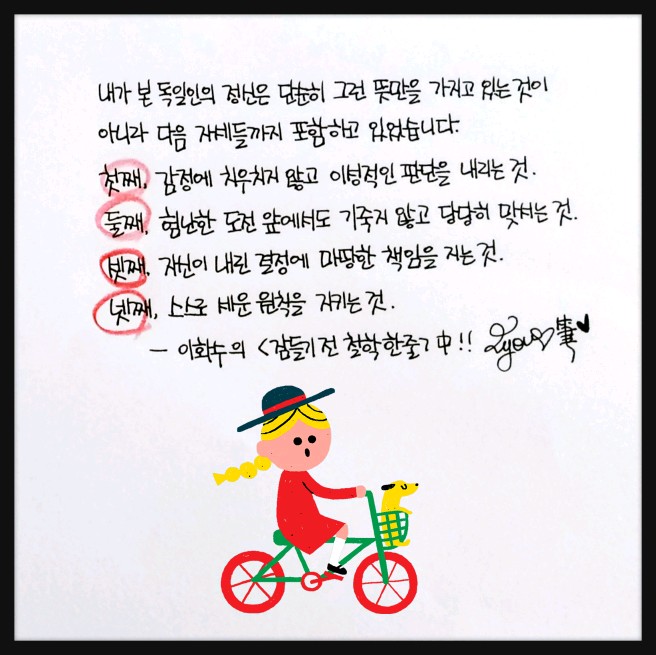 내가 본 독일인의 정신은 단순히 그런 뜻만을 가지고 있는 것이
아니라 다음 자세들까지 포함하고 있었습니다.
첫째, 감정에 치우치지 않고 이성적인 판단을 내리는 것.
둘째, 험난한 도전 앞에서도 기죽지 않고 당당히 맞서는 것.
셋째, 자신이 내린 결정에 마땅한 책임을 지는 것.
넷째, 스스로 세운 원칙을 지키는 것.
- 이화수의 <잠들기 전 철학 한 줄> 中 !!